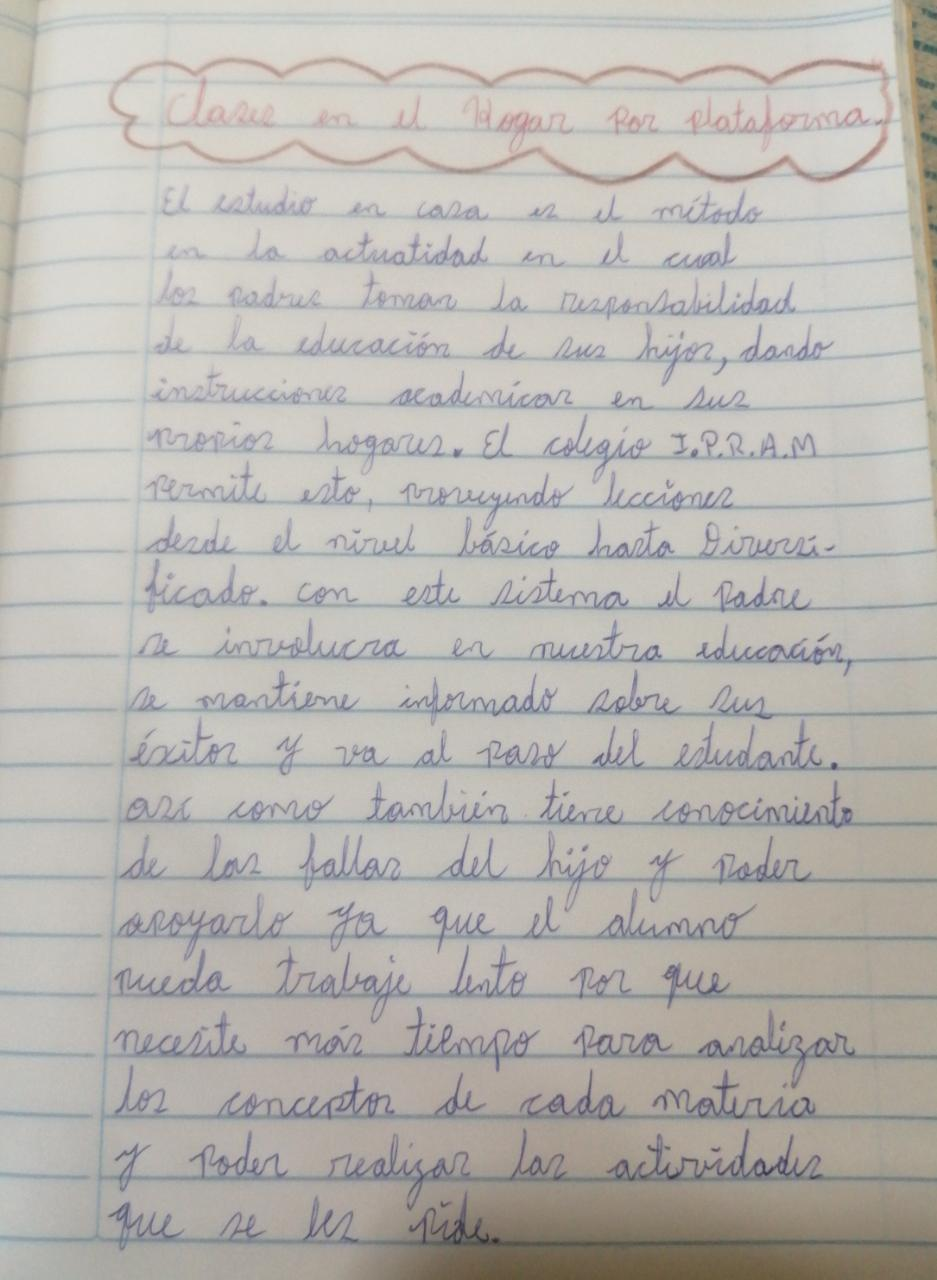 Clases en el Hogar por plataforma.
El estudio en casa es el método
en la actuatidad en el cual
los padres toman la responsabilidad
de la educación de sus hijos, dando
instrucciones academicas en sus
propios hogares. El colegio I.P.R.A.M
permite esto, proveyendo lecciones
desde el nivel básico hasta Diversi-
ficado. con este sistema el padre
se involucra en nuestra educación,
se mantiene informado sobre sus
éxitos y va al paso del estudante.
asi como también tiene conocimiento
de las fallas del hijo y poder
apoyarlo ya que el alumno
pueda trabaje lento por que
necesite más tiempo para analizar
los conceptos de cada materia
y poder realizar las actividades
que se les pide.